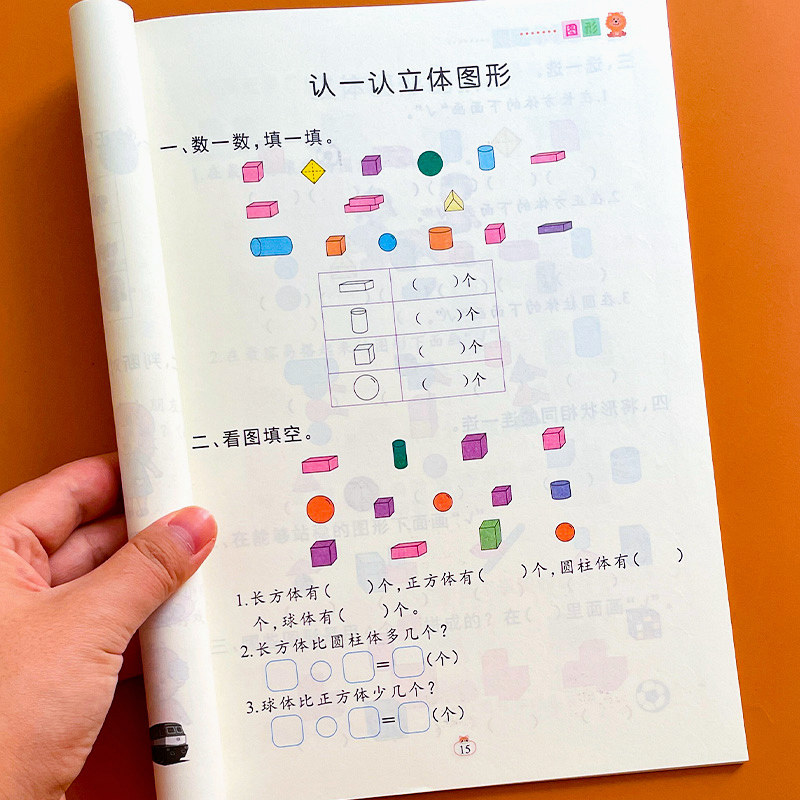 图形
认一认立体图形
一、数一数,填一填。
( )个
( )个
( )个
( )个
二、看图填空。
1.长方体有( )个,正方体有( )个,圆柱体有( )
个,球体有( )个。
2.长方体比圆柱体多几个?
=(个)
3.球体比正方体少几个?
=(个)
15